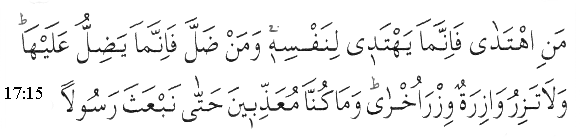 مَنِ اهْتَدٰى فَاِنَّمَا يَهْتَدٖى لِنَفْسِهٖۚ وَمَنْ ضَلَّ فَاِنَّمَا يَضِلُّ عَلَيْهَاؕ
17:15 وَلَا تَزِرُ وَازِرَةٌ وِزْرَ اُخْرٰىؕ وَمَا كُنَّا مُعَذِّبٖينَ حَتّٰى نَبْعَثَ رَسُولاً